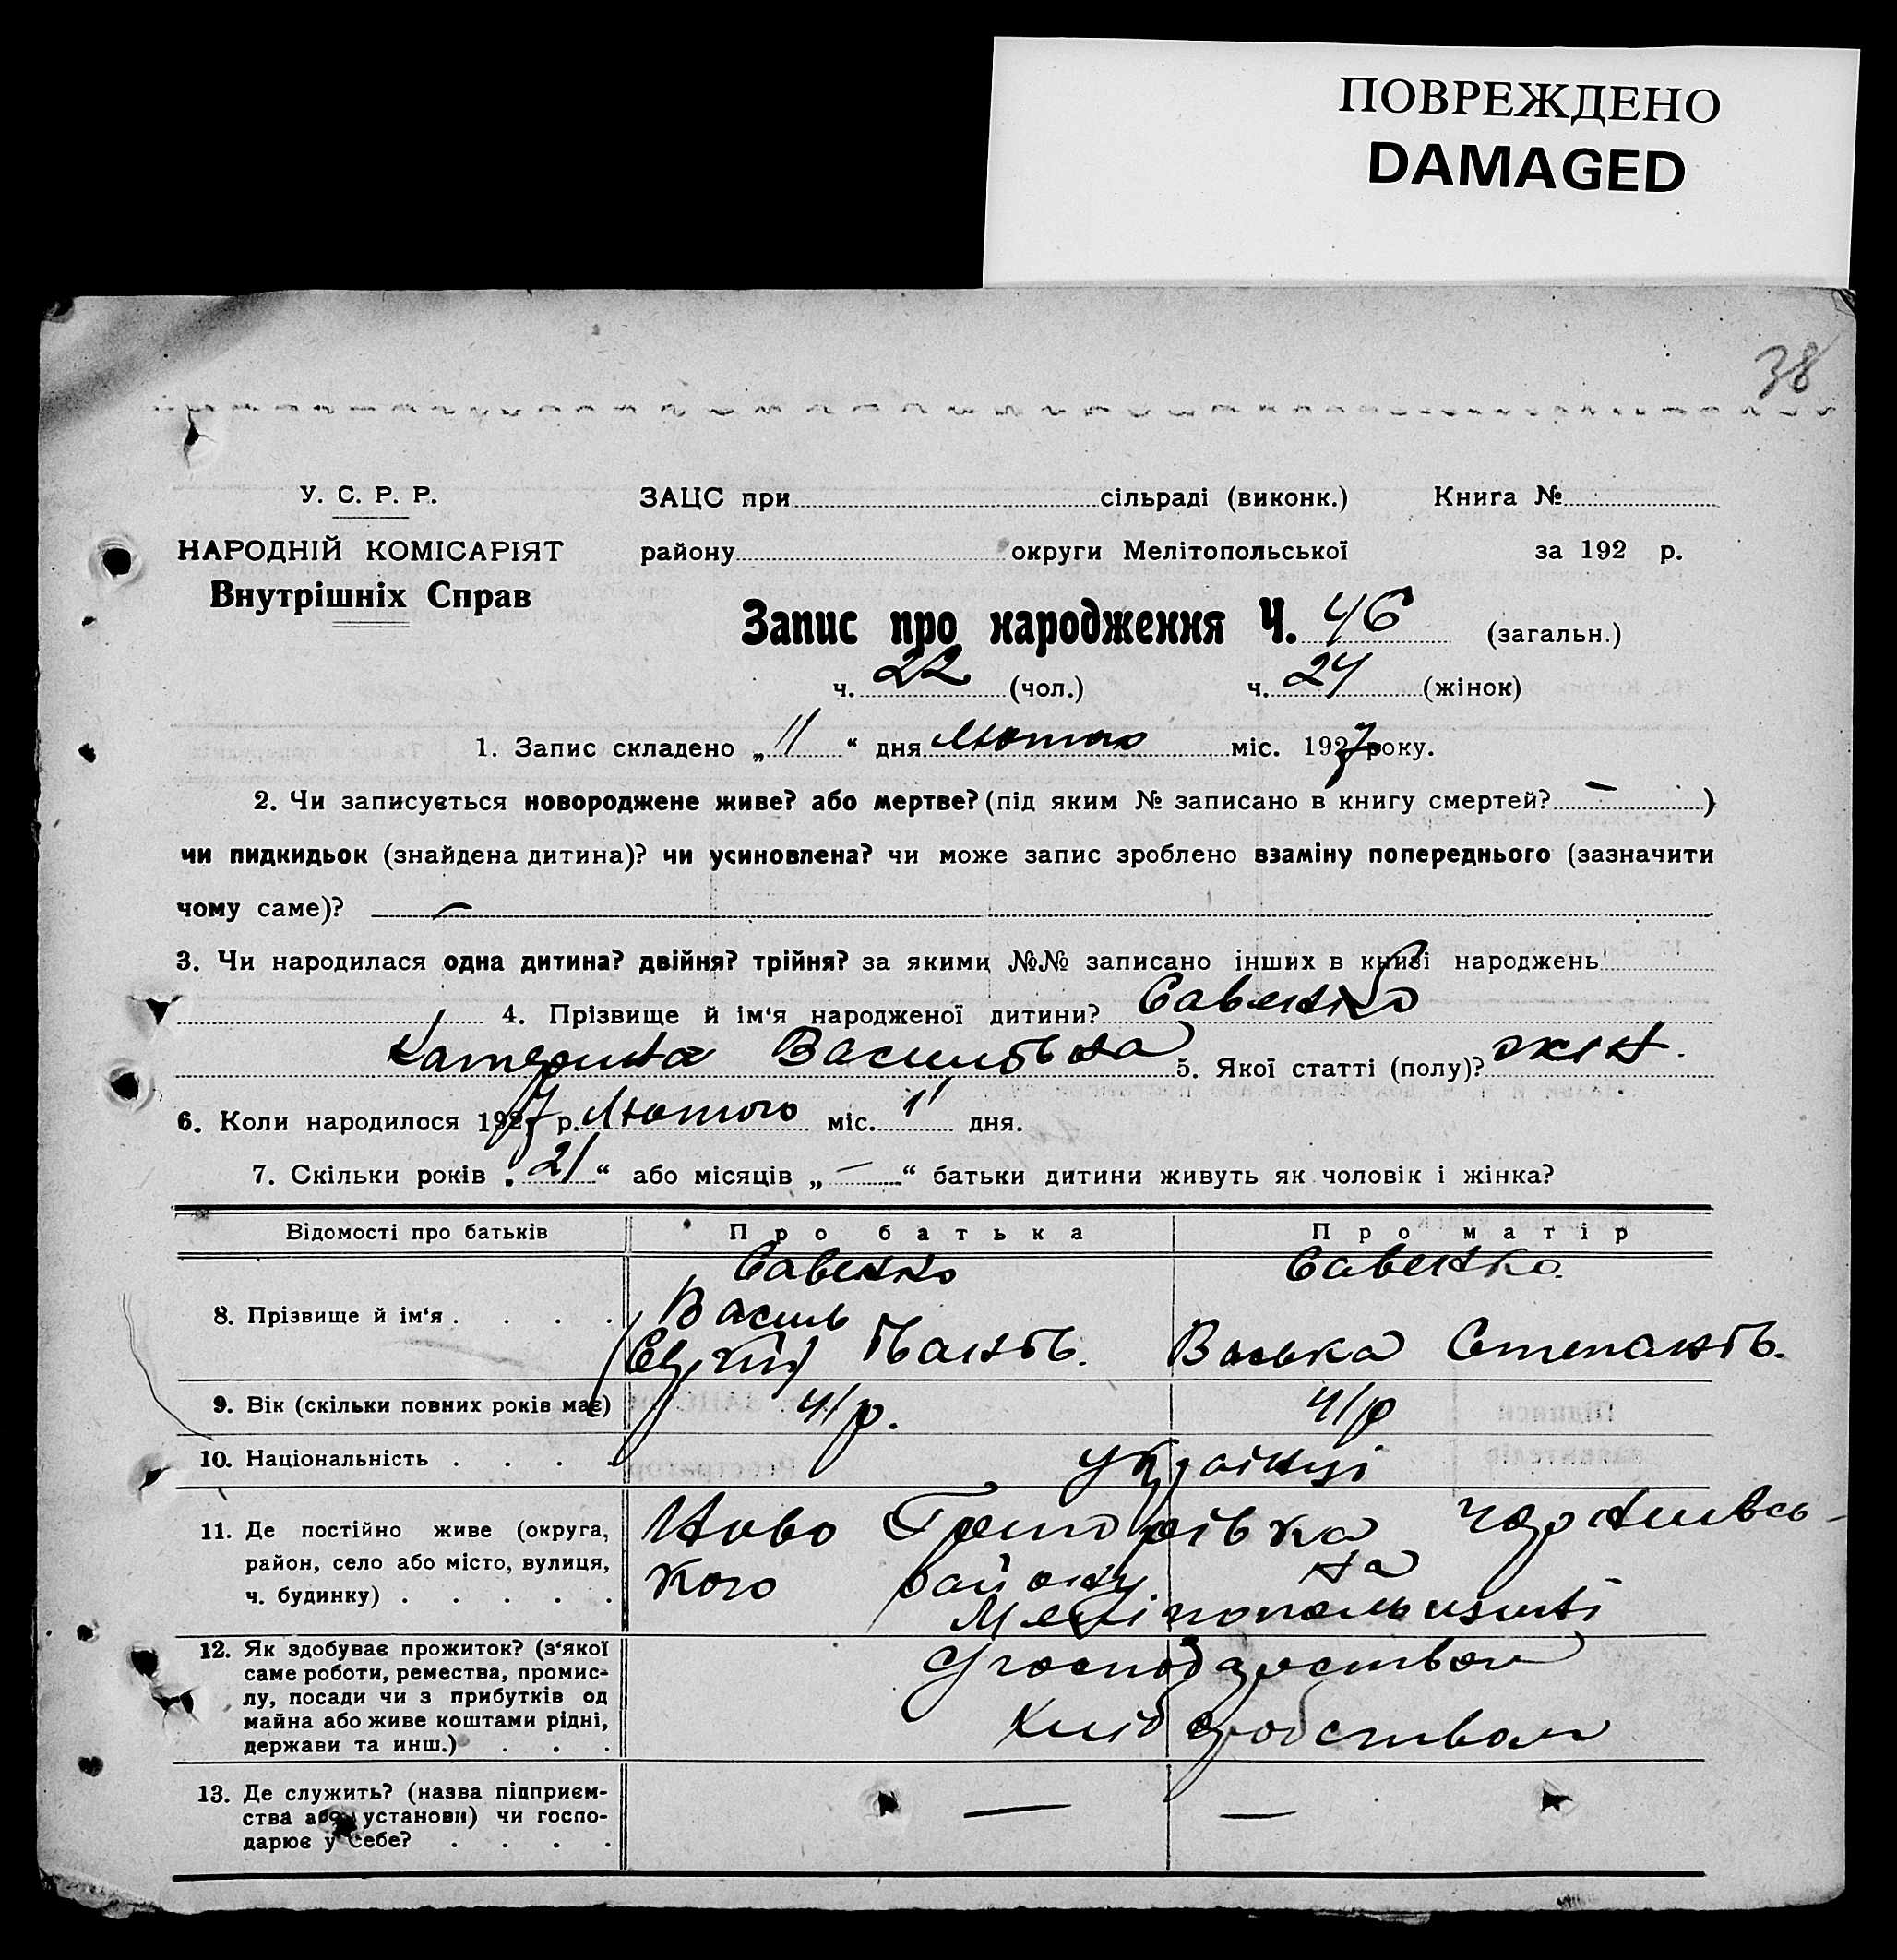 ПОВРЕЖДЕНО
DAMAGED
38
У. С. Р. Р.
ЗАЦС при сільраді (виконк.) Книга №
НАРОДНІЙ КОМІСАРІЯТ
району округи Мелітопольської за 192 р.
Внутрішніх Справ
Запис про народження Ч. 46 (загальн.)
ч. 22 (чол.) ч. 24 (жінок)
1. Запис складено „ 11 “ дня Лютого міс. 1927 року.
2. Чи записується новороджене живе? або мертве? (під яким № записано в книгу смертей? — )
чи пидкидьок (знайдена дитина)? чи усиновлена? чи може запис зроблено взаміну попереднього (зазначити
чому саме)? —
3. Чи народилася одна дитина? двійня? трійня? за якими №№ записано інших в книзі народжень
4. Прізвище й ім‘я народженої дитини? Савенко
Катерина Васильвна 5. Якої статті (полу)? жін.
6. Коли народилося 1927 р. Лютого міс. 1 дня.
7. Скільки років „ 21 “ або місяців „ — “ батьки дитини живуть як чоловік і жінка?
Відомості про батьків Про батька Про матір
Савенко Савенко
8. Прізвище й ім‘я . . . . Василь
Іванов. Степанов.
9. Вік (скільки повних років має) 41 р. 41 р
10. Національність . . . . українці
11. Де постійно живе (округа, район, село або місто, вулиця, ч. будинку) . . . . .
Ново Григорівка Чернинсь-
кого району на
Мелітопольщині
12. Як здобуває прожиток? (з‘якої саме роботи, ремества, промис-
лу, посади чи з прибутків од майна або живе коштами рідні,
держави та инш.) . . .
господарством
хліборобством
13. Де служить? (назва підприєм-
ства або установи) чи госпо-
дарює у себе? . . . . — —